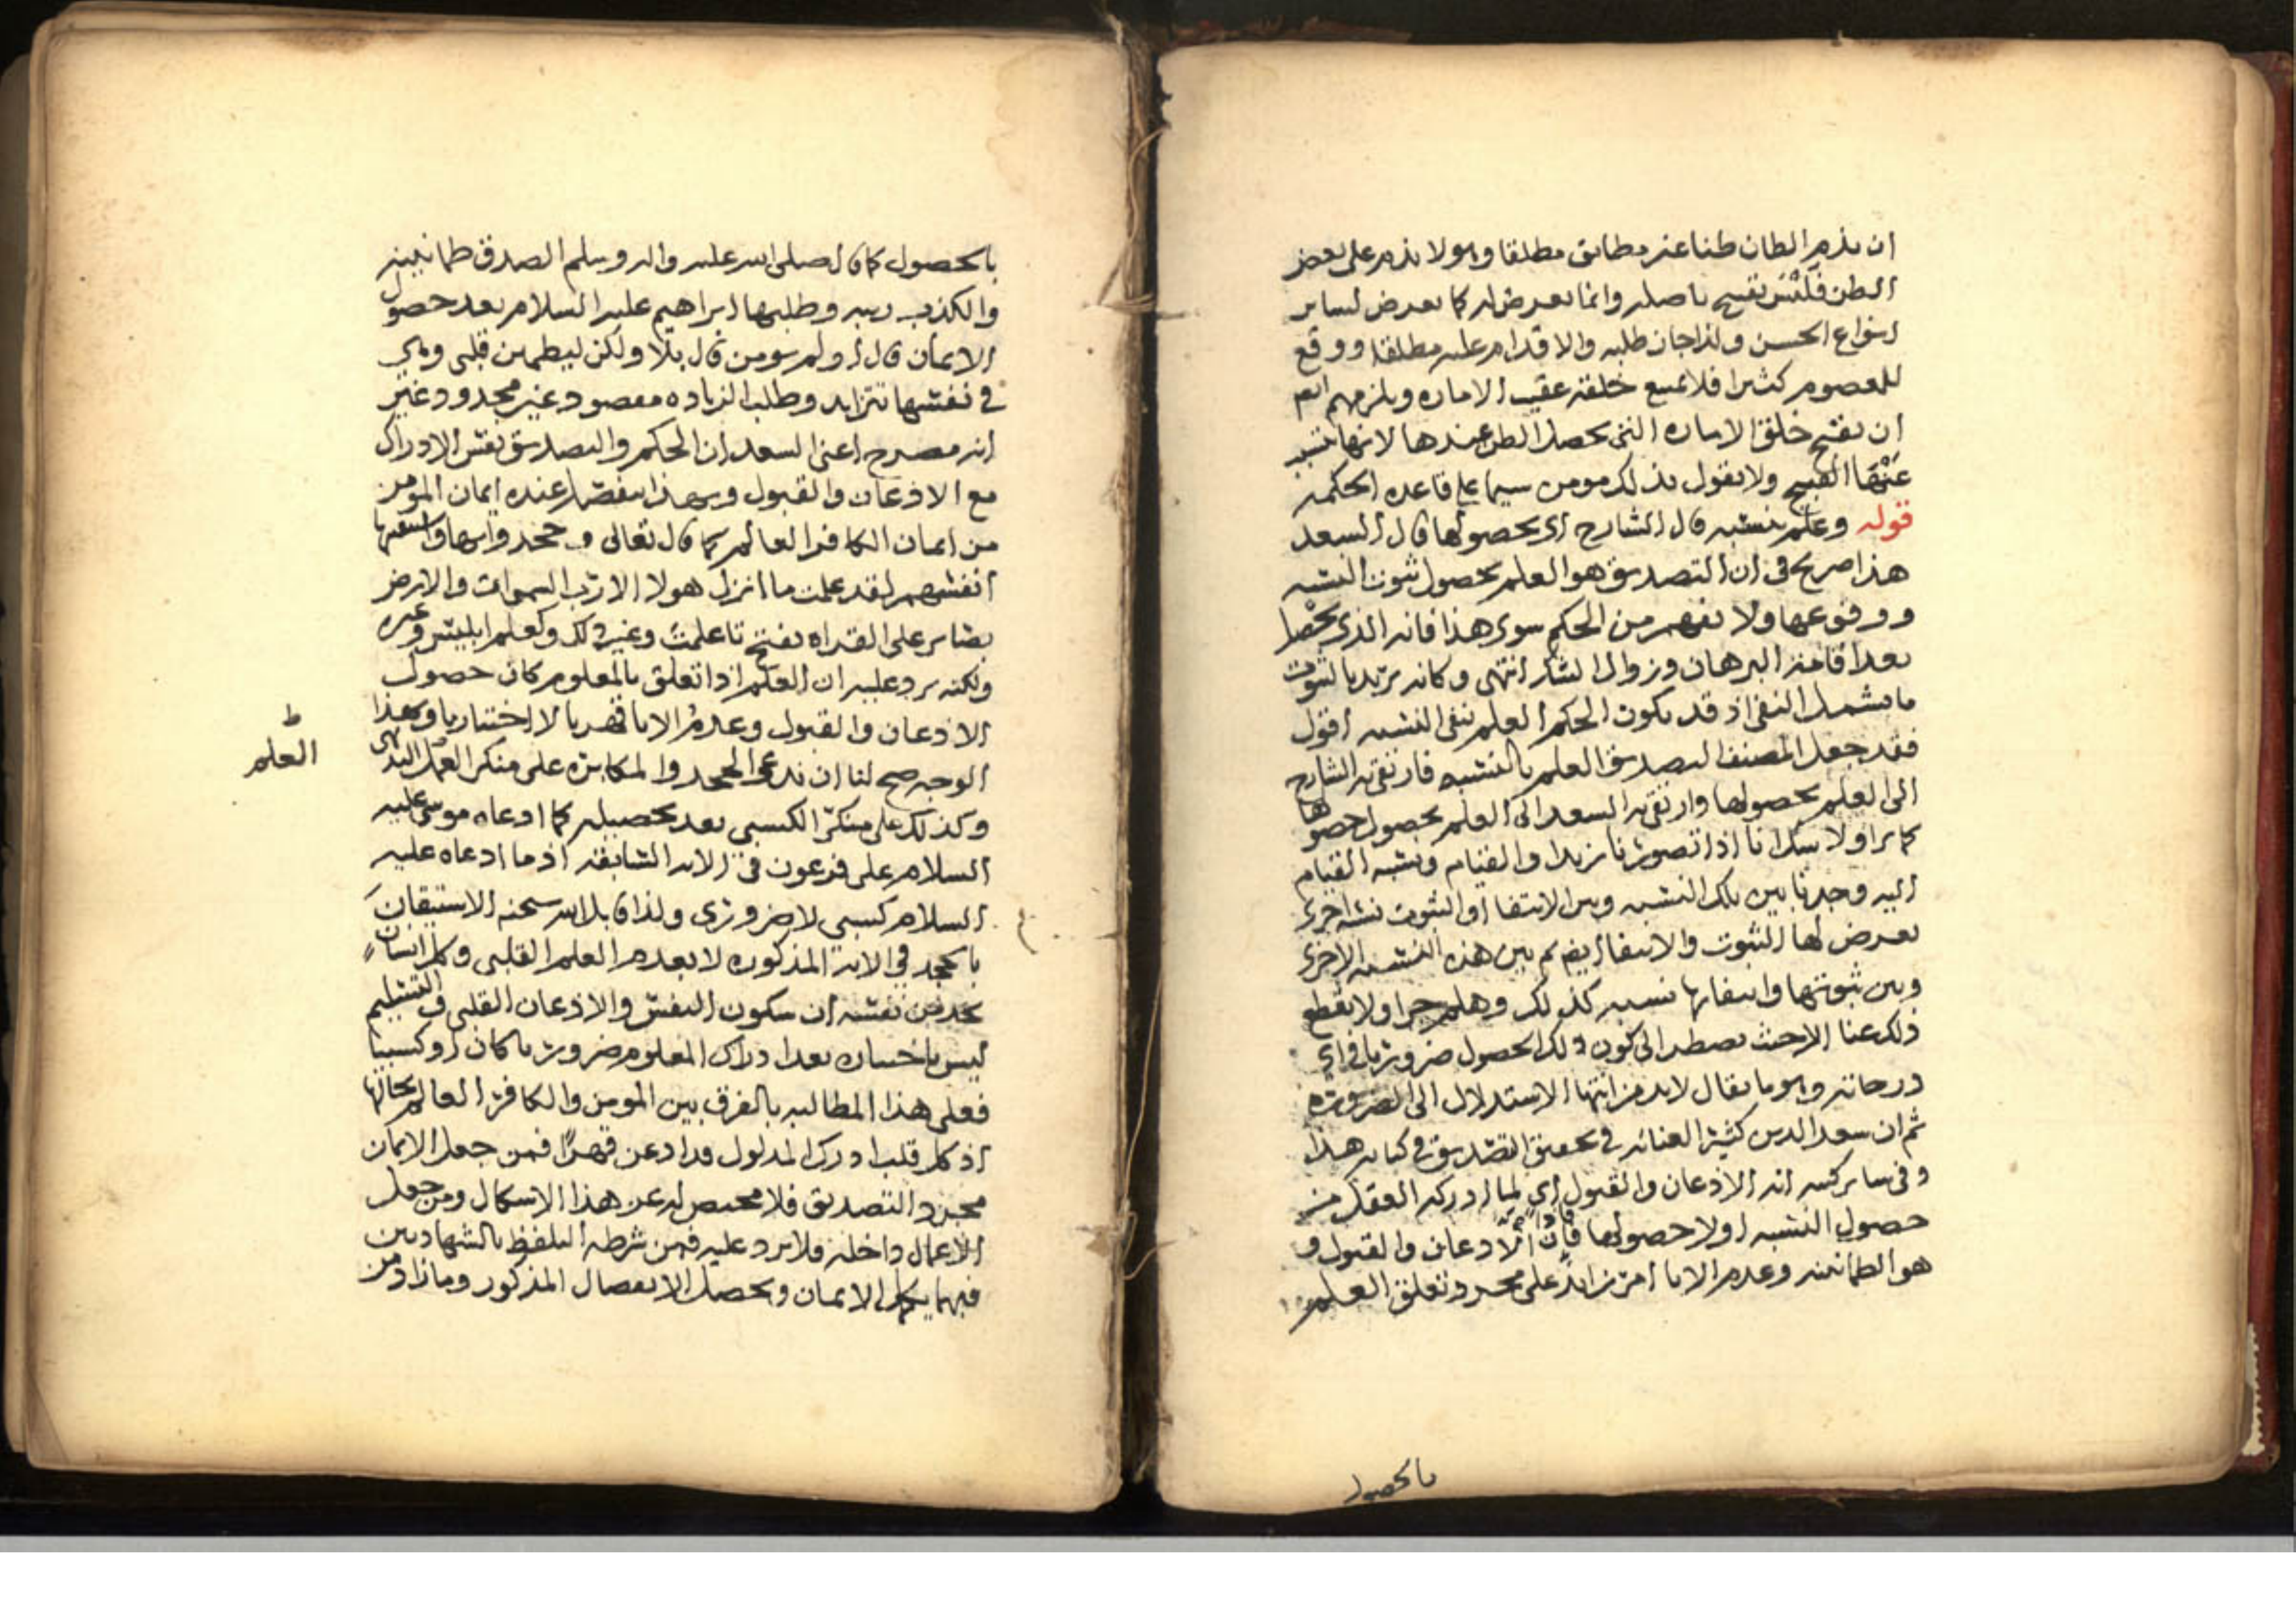 ان يذم الظان ظنا غير مطابق مطلقا وهو لا يذم على بعض
الظن فليس بقبيح باصله وانما يعرض له كما يعرض لساير
انواع الحسن ولذا جاز طلبه والاقدام عليه مطلقا ووقع
للمعصوم كثيرا فلا يمنع خلقه عقيب الاماره ويلزمهم
ان يقبح خلق الاماره التي يحصل الظن عندها لانها
عنها القبيح ولا يقول بذلك مومن سيما على قاعده الحكمه
قوله وعلم بنسبه قال الشارح اي بحصولها قال السعد
هذا صريح في ان التصديق هو العلم بحصول ثبوت النسبه
ووقوعها ولا نفهم من الحكم سوى هذا فانه الذي يحصل
بعد اقامه البرهان وزوال الشك انتهى وكانه يريد بالثبوت
ما يشمل النفي اذ قد يكون الحكم العلم بنفي النسبه اقول
فقد جعل المصنف التصديق العلم بالنسبه فارتقى به الشارح
الى العلم بحصولها وارتقى به السعد الى العلم بحصول حصولها
كما ترا ولا شك انا اذا تصورنا زيدا والقيام ونسبه القيام
اليه وجدنا بين تلك النسبه وبين الانتفا او الثبوت نسبه اخرى
يعرض لها الثبوت والانتفا ثم بين هذه النسبه الاخرى
وبين ثبوتها وانتفايها نسبه كذلك وهلم جرا ولا ينقطع
ذلك عنا الا حيث نضطر الى كون ذلك الحصول ضروريا في اي
درجاته وهو ما يقال لابد من انتها الاستدلال الى الضروره
ثم ان سعد الدين كثير العنايه في تحقيق التصديق في كتابه هذا
وفي ساير كتبه انه الاذعان والقبول اي لما ادركه العقل من
حصول النسبه او لا حصولها فان الاذعان والقبول و
هو الطمانينه وعدم الابا امر زايد على مجرد تعلق العلم
بالحصول
بالحصول كما قال صلى الله عليه واله وسلم الصدق طمانينه
والكذب ريبه وطلبها ابراهيم عليه السلام بعد حصول
الايمان قال اولم تومن قال بلا ولكن ليطمين قلبي وهي
في نفسها تتزايد وطلب الزياده مقصود غير محدود غير
انه مصرح اعني السعد ان الحكم والتصديق نفس الادراك
مع الاذعان والقبول وبهذا ينفصل عنده ايمان المومن
من ايمان الكافر العالم كما قال تعالى وجحدوا بها واستيقنتها
انفسهم لقد علمت ما انزل هولا الا رب السموات والارض
بصاير على القراه بفتح تا علمت وغير ذلك وكعلم ابليس وغيره
ولكنه يرد عليه ان العلم اذا تعلق بالمعلوم كان حصول
الاذعان والقبول وعدم الابا قهريا لا اختياريا وبهذا
الوجه صح لنا ان ندعي الجحد والمكابره على منكر العلم البديهي
ط
العلم
وكذلك على منكر الكسبي بعد تحصيله كما ادعاه موسى عليه
السلام على فرعون في الايه السابقه اذ ما ادعاه عليه
السلام كسبي لا ضروري ولذا قابل الله سبحنه الاستيقان
بالجحد في الايه المذكوره لا بعدم العلم القلبي وكل انسان
يجد من نفسه ان سكون النفس والاذعان القلبي والتسليم
ليس باختياره بعد ادراك المعلوم ضروريا كان او كسبيا
فعلى هذا المطالبه بالفرق بين المومن والكافر العالم بحالها
اذ كل قلب ادرك المدلول قد اذعن قهرا فمن جعل الايمان
مجرد التصديق فلا محيص له عن هذا الاشكال ومن جعل
الاعمال داخله فلا يرد عليه فمن شرطه التلفظ بالشهادتين
فبهما يكمل الايمان ويحصل الانفصال المذكور وما زاد من